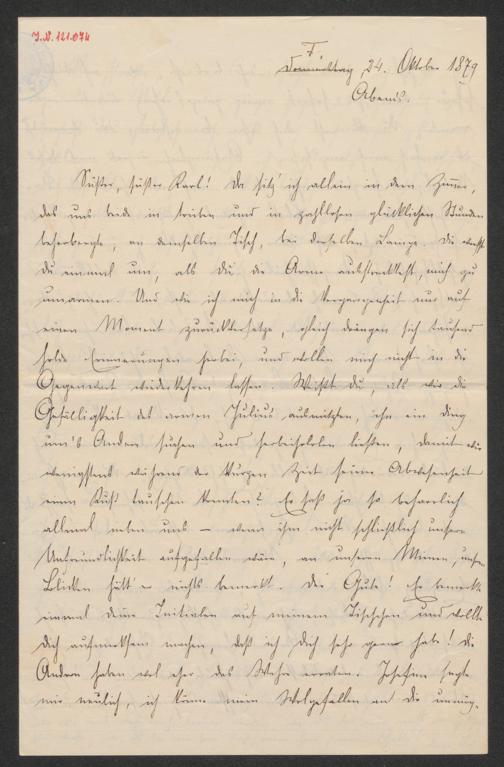 J.N. 121.074
F.
Donnerstag, 24. Oktober 1879
Abends.
Süßer, süßer Karl! Da sitz' ich allein in dem Zimmer,
das uns beide in trüben und in zahllosen glücklichen Stunden
beherbergte, an demselben Tisch, bei derselben Lampe. Die warfst
du einmal um, als du die Arme ausstrecktest, mich zu
umarmen. Und wie ich mich in die Vergangenheit nur auf
einen Moment zurückversetze, gleich drängen sich tausend
holde Erinnerungen herbei, und wollen mich nicht in die
Gegenwart wiederkehren lassen. Weißt du, als wir die
Gefälligkeit des armen Julius ausnützten, ihn ein Ding
um's Andere suchen und herbeiholen ließen, damit wir
wenigstens während der kurzen Zeit seiner Abwesenheit
einen Kuß tauschen konnten? Er saß ja so beharrlich
allemal neben uns – wenn ihm nicht schließlich unsere
Unfreundlichkeit aufgefallen wäre, an unseren Mienen, unsern
Blicken hätt' er nichts bemerkt. Der Gute! Er bemerkte
einmal deine Initialen auf meinem Tischchen und wollte
dich aufmerksam machen, daß ich dich sehr gern habe! Die
Andern haben wol eher das Wahre erraten. Josefine sagte
mir neulich, ich könne mein Wolgefallen an die